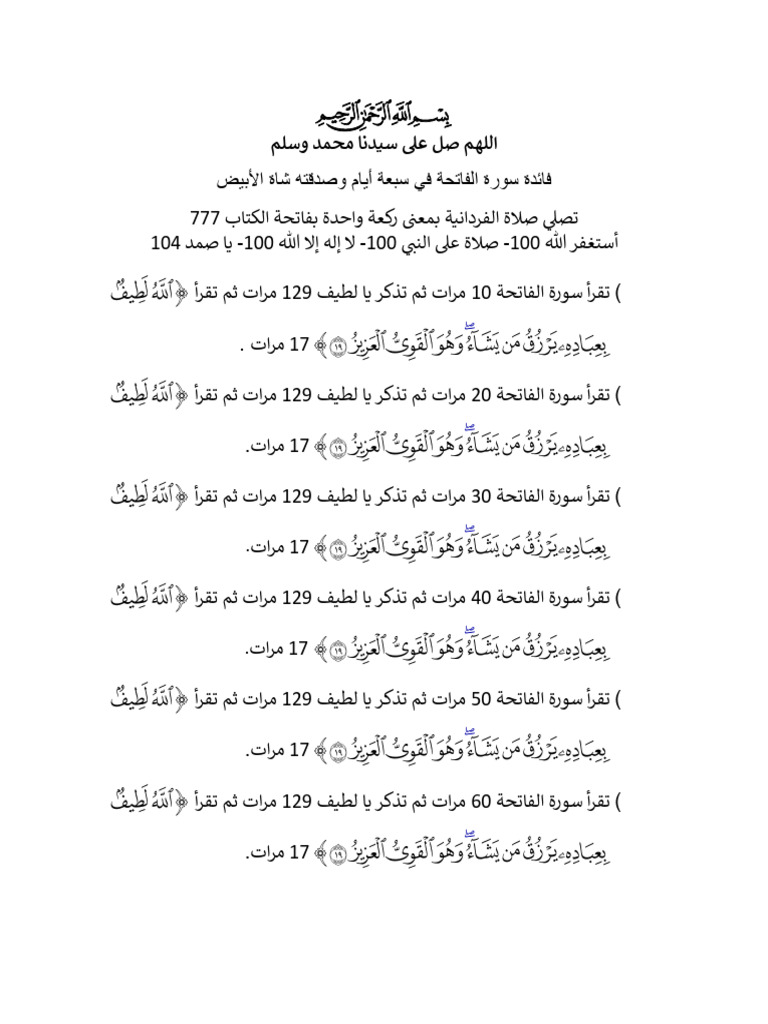 بِسْمِ ٱللَّهِ ٱلرَّحْمَٰنِ ٱلرَّحِيمِ
اللهم صل على سيدنا محمد وسلم
فائدة سورة الفاتحة في سبعة أيام وصدقته شاة الأبيض
تصلي صلاة الفردانية بمعنى ركعة واحدة بفاتحة الكتاب 777
أستغفر الله 100- صلاة على النبي 100- لا إله إلا الله 100- يا صمد 104
) تقرأ سورة الفاتحة 10 مرات ثم تذكر يا لطيف 129 مرات ثم تقرأ ﴿ٱللَّهُ لَطِيفُۢ
بِعِبَادِهِۦ يَرْزُقُ مَن يَشَآءُۖ وَهُوَ ٱلْقَوِىُّ ٱلْعَزِيزُ ١٩﴾ 17 مرات .
) تقرأ سورة الفاتحة 20 مرات ثم تذكر يا لطيف 129 مرات ثم تقرأ ﴿ٱللَّهُ لَطِيفُۢ
بِعِبَادِهِۦ يَرْزُقُ مَن يَشَآءُۖ وَهُوَ ٱلْقَوِىُّ ٱلْعَزِيزُ ١٩﴾ 17 مرات.
) تقرأ سورة الفاتحة 30 مرات ثم تذكر يا لطيف 129 مرات ثم تقرأ ﴿ٱللَّهُ لَطِيفُۢ
بِعِبَادِهِۦ يَرْزُقُ مَن يَشَآءُۖ وَهُوَ ٱلْقَوِىُّ ٱلْعَزِيزُ ١٩﴾ 17 مرات.
) تقرأ سورة الفاتحة 40 مرات ثم تذكر يا لطيف 129 مرات ثم تقرأ ﴿ٱللَّهُ لَطِيفُۢ
بِعِبَادِهِۦ يَرْزُقُ مَن يَشَآءُۖ وَهُوَ ٱلْقَوِىُّ ٱلْعَزِيزُ ١٩﴾ 17 مرات.
) تقرأ سورة الفاتحة 50 مرات ثم تذكر يا لطيف 129 مرات ثم تقرأ ﴿ٱللَّهُ لَطِيفُۢ
بِعِبَادِهِۦ يَرْزُقُ مَن يَشَآءُۖ وَهُوَ ٱلْقَوِىُّ ٱلْعَزِيزُ ١٩﴾ 17 مرات.
) تقرأ سورة الفاتحة 60 مرات ثم تذكر يا لطيف 129 مرات ثم تقرأ ﴿ٱللَّهُ لَطِيفُۢ
بِعِبَادِهِۦ يَرْزُقُ مَن يَشَآءُۖ وَهُوَ ٱلْقَوِىُّ ٱلْعَزِيزُ ١٩﴾ 17 مرات.